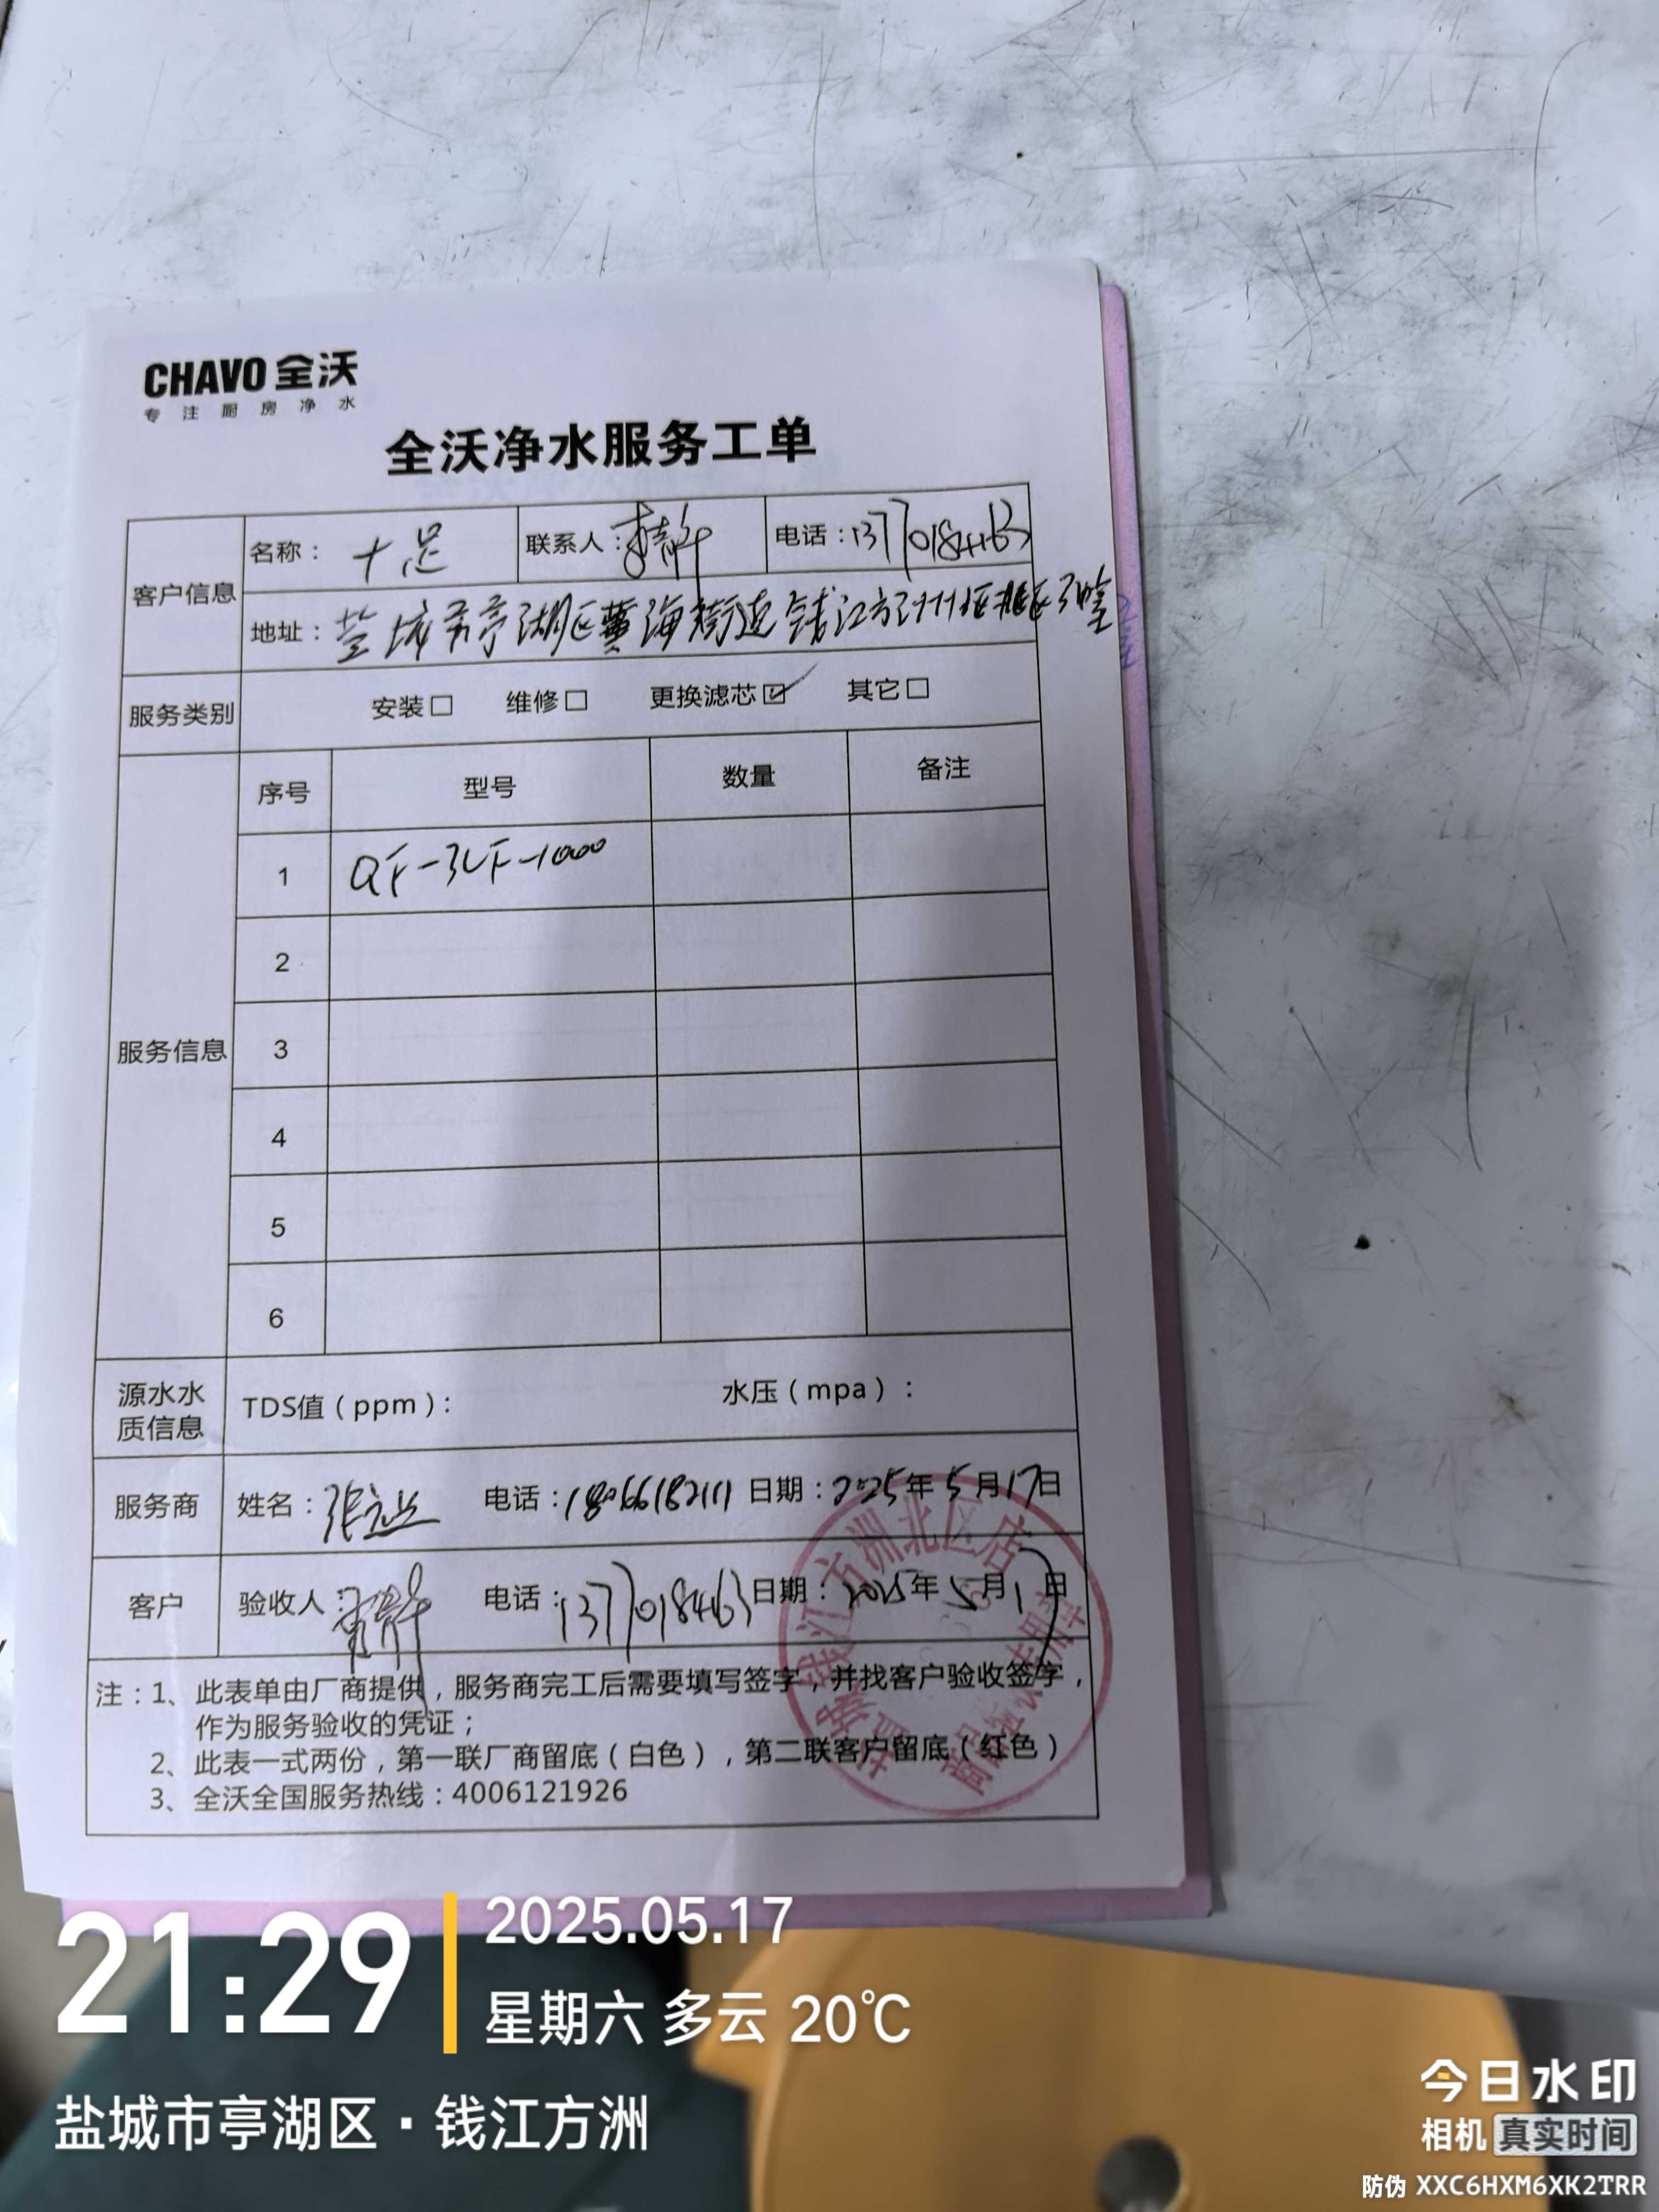 CHAVO 全沃
专注厨房净水
全沃净水服务工单
客户信息 名称：十足 联系人：李静 电话：13770184463
地址：盐城市亭湖区黄海街道钱江方洲
服务类别 安装□ 维修□ 更换滤芯☑ 其它□
服务信息 序号 型号 数量 备注
1 QF-3UF-1000
2
3
4
5
6
源水水质信息 TDS值（ppm）： 水压（mpa）：
服务商 姓名：张 电话：18066182111 日期：2025年5月17日
客户 验收人：李静 电话：13770184463 日期：2025年5月17日
注：1、此表单由厂商提供，服务商完工后需要填写签字，并找客户验收签字，
作为服务验收的凭证；
2、此表一式两份，第一联厂商留底（白色），第二联客户留底（红色）
3、全沃全国服务热线：4006121926
钱江方洲北区店
21:29
2025.05.17
星期六 多云 20℃
盐城市亭湖区·钱江方洲
今日水印
相机 真实时间
防伪 XXC6HXM6XK2TRR